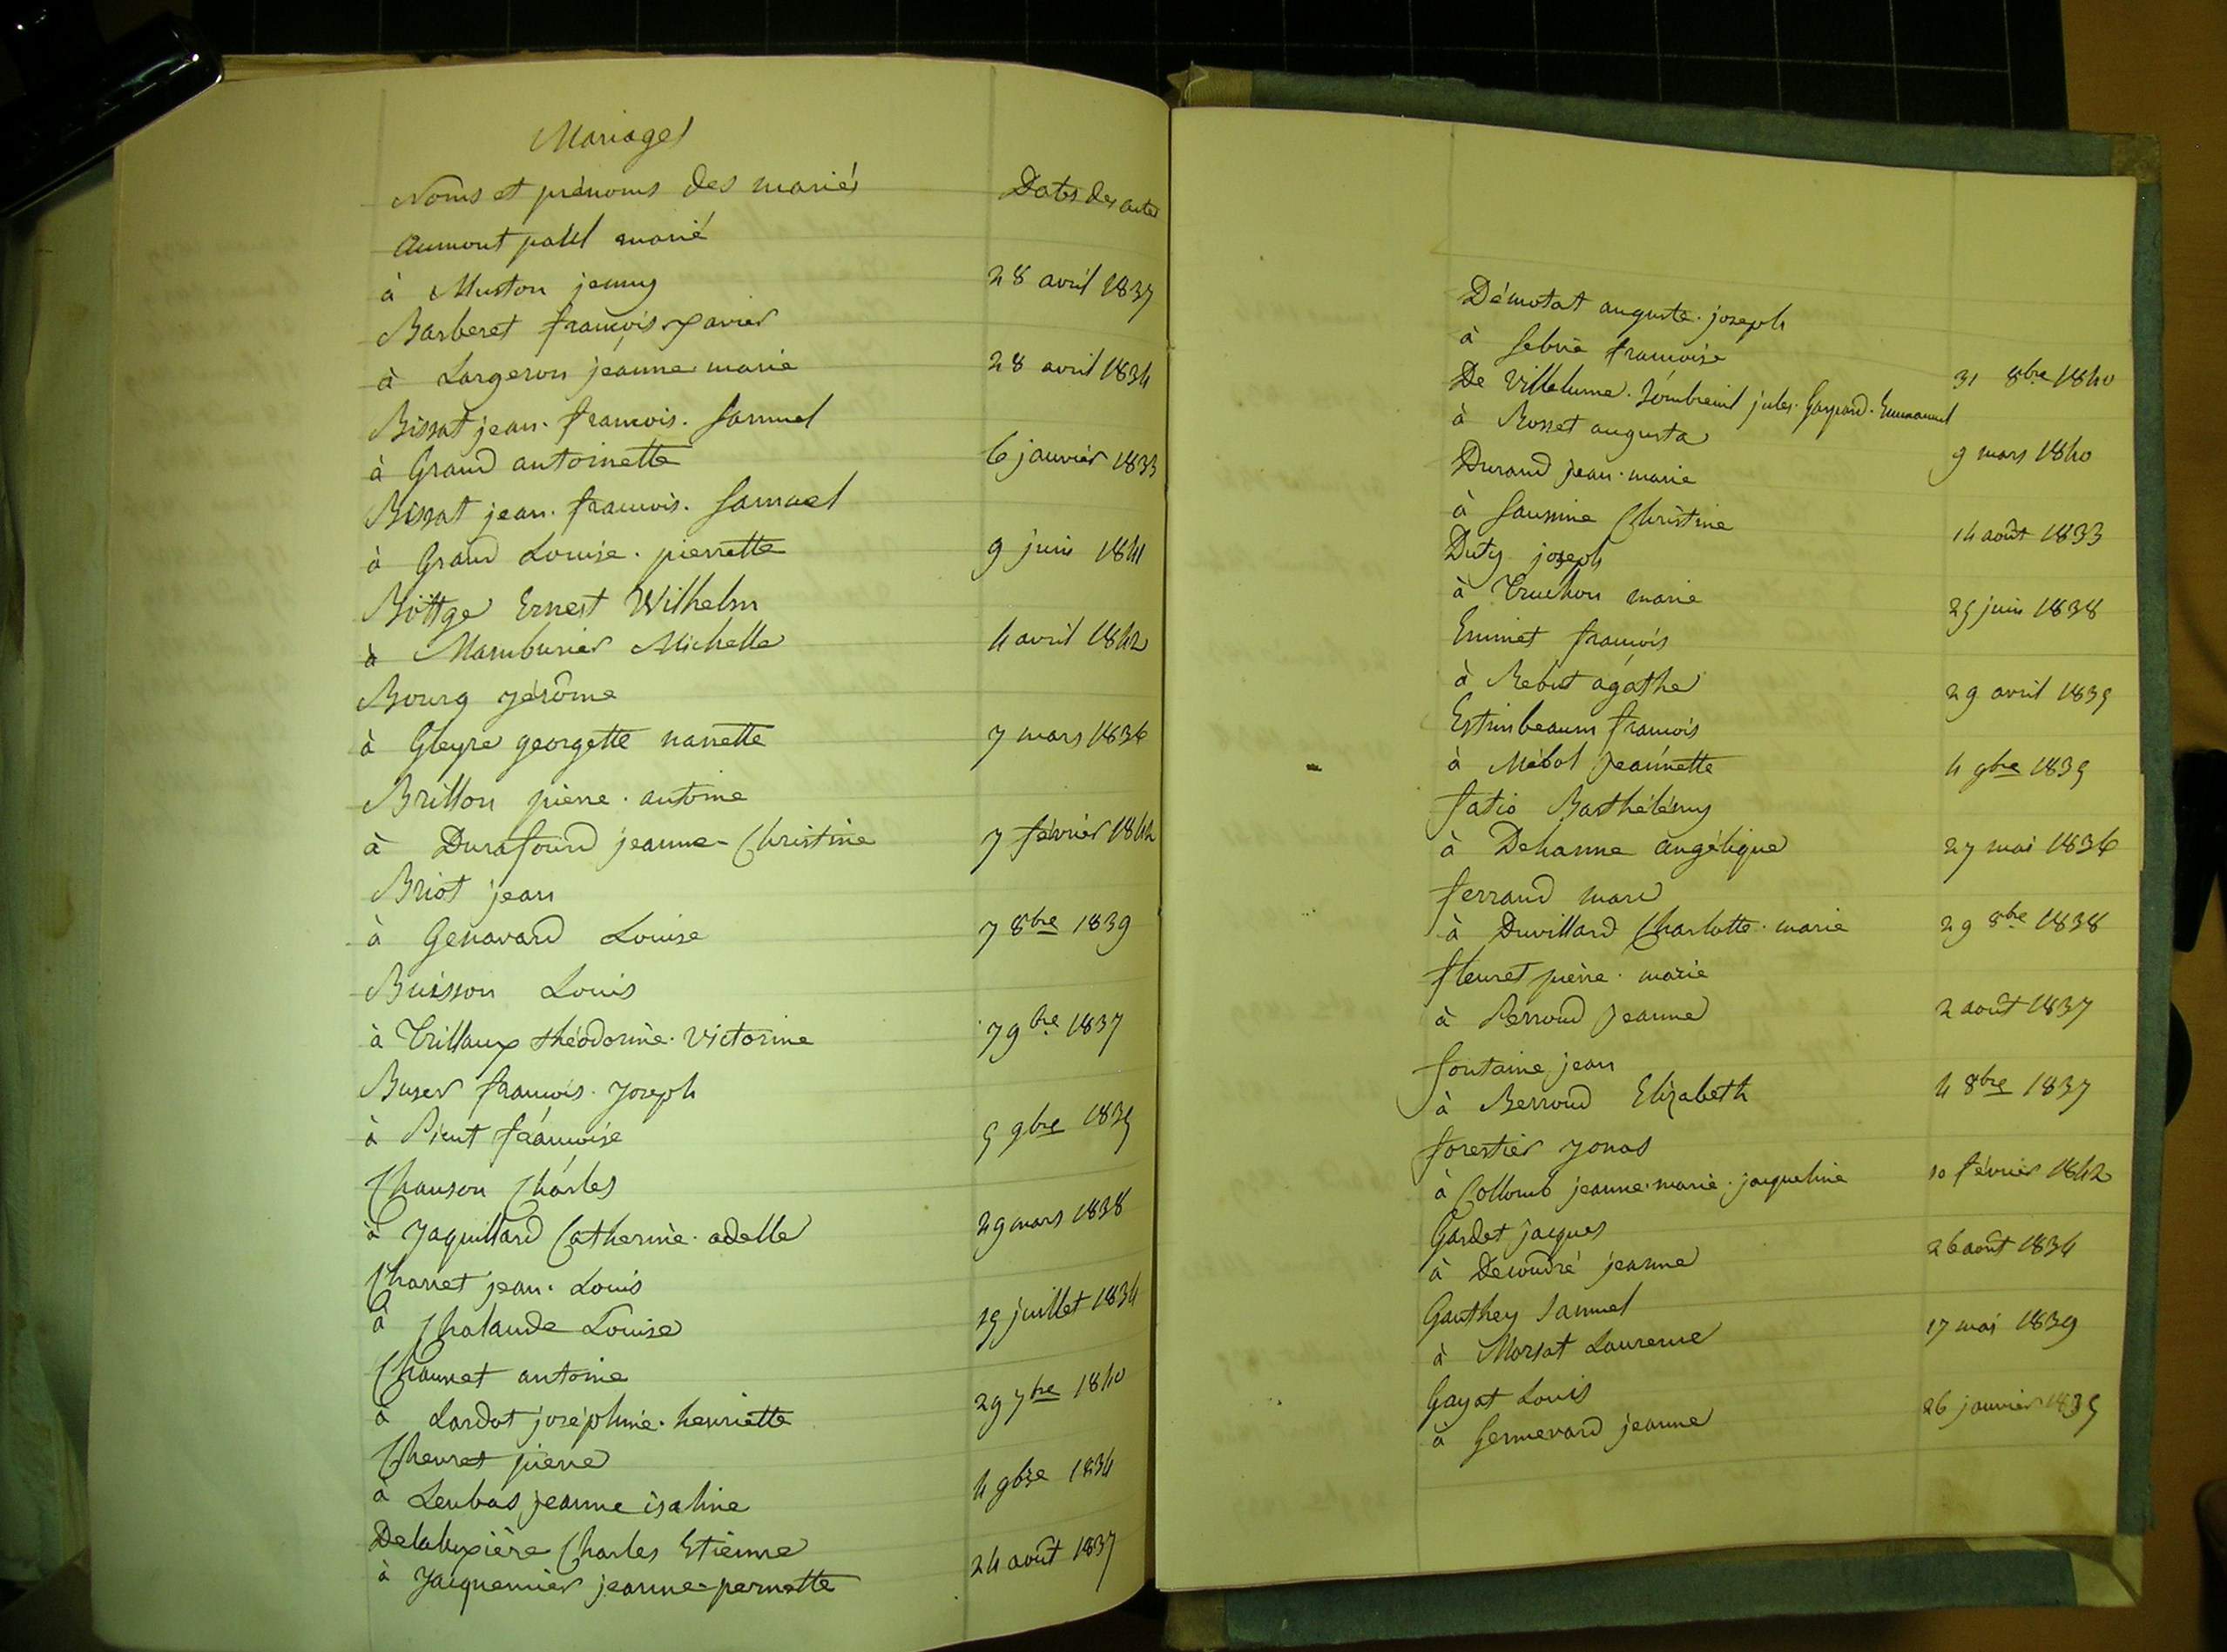 Mariages
Noms et prénoms des mariés Dates des actes
Aumont paul marié
à Muston jenny 28 avril 1837
Barberet françois-xavier
à Largeron jeanne marie 28 avril 1834
Bissat jean. françois. Samuel
à Grand antoinette 6 janvier 1833
Bissat jean. françois. Samuel
à Grand Louise. pierrette 9 juin 1841
Böttge Ernest Wilhelm
à Mamburier Michelle 4 avril 1842
Bourg jérôme
à Gleyre georgette nanette 7 mars 1836
Brillon pierre. antoine
à Durafourd jeanne-Christine 7 février 1842
Briot jean
à Genavard Louise 7 8bre 1839
Buisson Louis
à Trillaux théodorine. Victorine 7 9bre 1837
Buser françois. Joseph
à françoise 5 9bre 1835
Chanson Charles
à Jaquillard Catherine. adelle 29 mars 1838
Charret jean. Louis
à Chalande Louise 15 juillet 1834
Chaunet antoine
à Lardot joséphine. henriette 29 7bre 1840
Chevret pierre
à Leubas jeanne isaline 4 9bre 1834
Delaluxière Charles Etienne
à Jacquemier jeanne-pernette 24 août 1837
Démotat auguste. joseph
à françoise 31 8bre 1840
De Villelume. Sombreuil jules. Gaspard. Emmanuel
à Rosset augusta 9 mars 1840
Durand jean. marie
à Saunine Christine 14 août 1833
Duty joseph
à Truchon marie 25 juin 1838
Emmet françois
à Rebut agathe 29 avril 1835
Estrinbeaum françois
à Mébol Jeannette 4 9bre 1835
fatio Barthélémy
à Dehanne angélique 27 mai 1836
ferrand marc
à Duvillard Charlotte. marie 29 8bre 1838
fleuret pierre. marie
à Perroud Jeanne 2 août 1837
fontaine jean
à Berroud Elizabeth 4 8bre 1837
forestier jonas
à Collomb jeanne. marie. jaqueline 10 février 1842
Gardet jacques
à Decoudré jeanne 26 août 1834
Gauthey Samuel
à Morsat Laurence 17 mai 1839
Gayat Louis
à Gennevard jeanne 26 janvier 1835